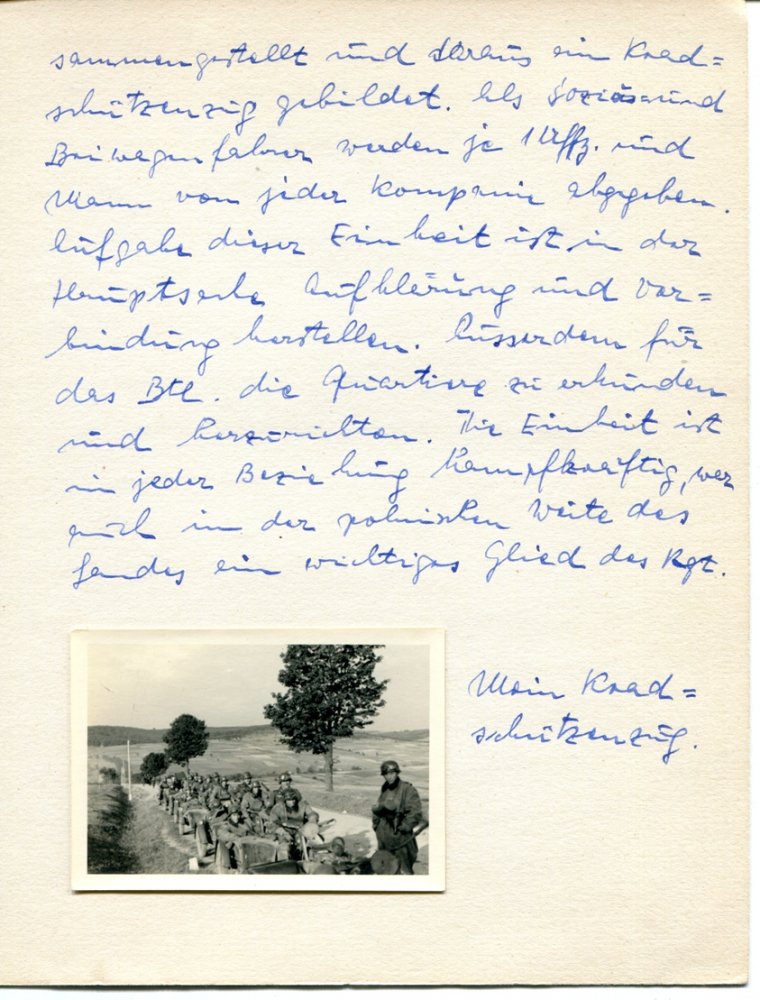 sammengestellt und daraus ein Krad=
schützenzug gebildet. Als Sozius- und
Beiwagenfahrer werden je 1 Uffz. und
Mann von jeder Kompanie abgegeben.
Aufgabe dieser Einheit ist in der
Hauptsache Aufklärung und Ver=
bindung herstellen. Ausserdem für
das Btl. die Quartiere zu erkunden
und herzurichten. Die Einheit ist
in jeder Beziehung kampfkräftig, war
auch in der polnischen Weite des
Landes ein wichtiges Glied des Rgt.
Mein Krad=
schützenzug.